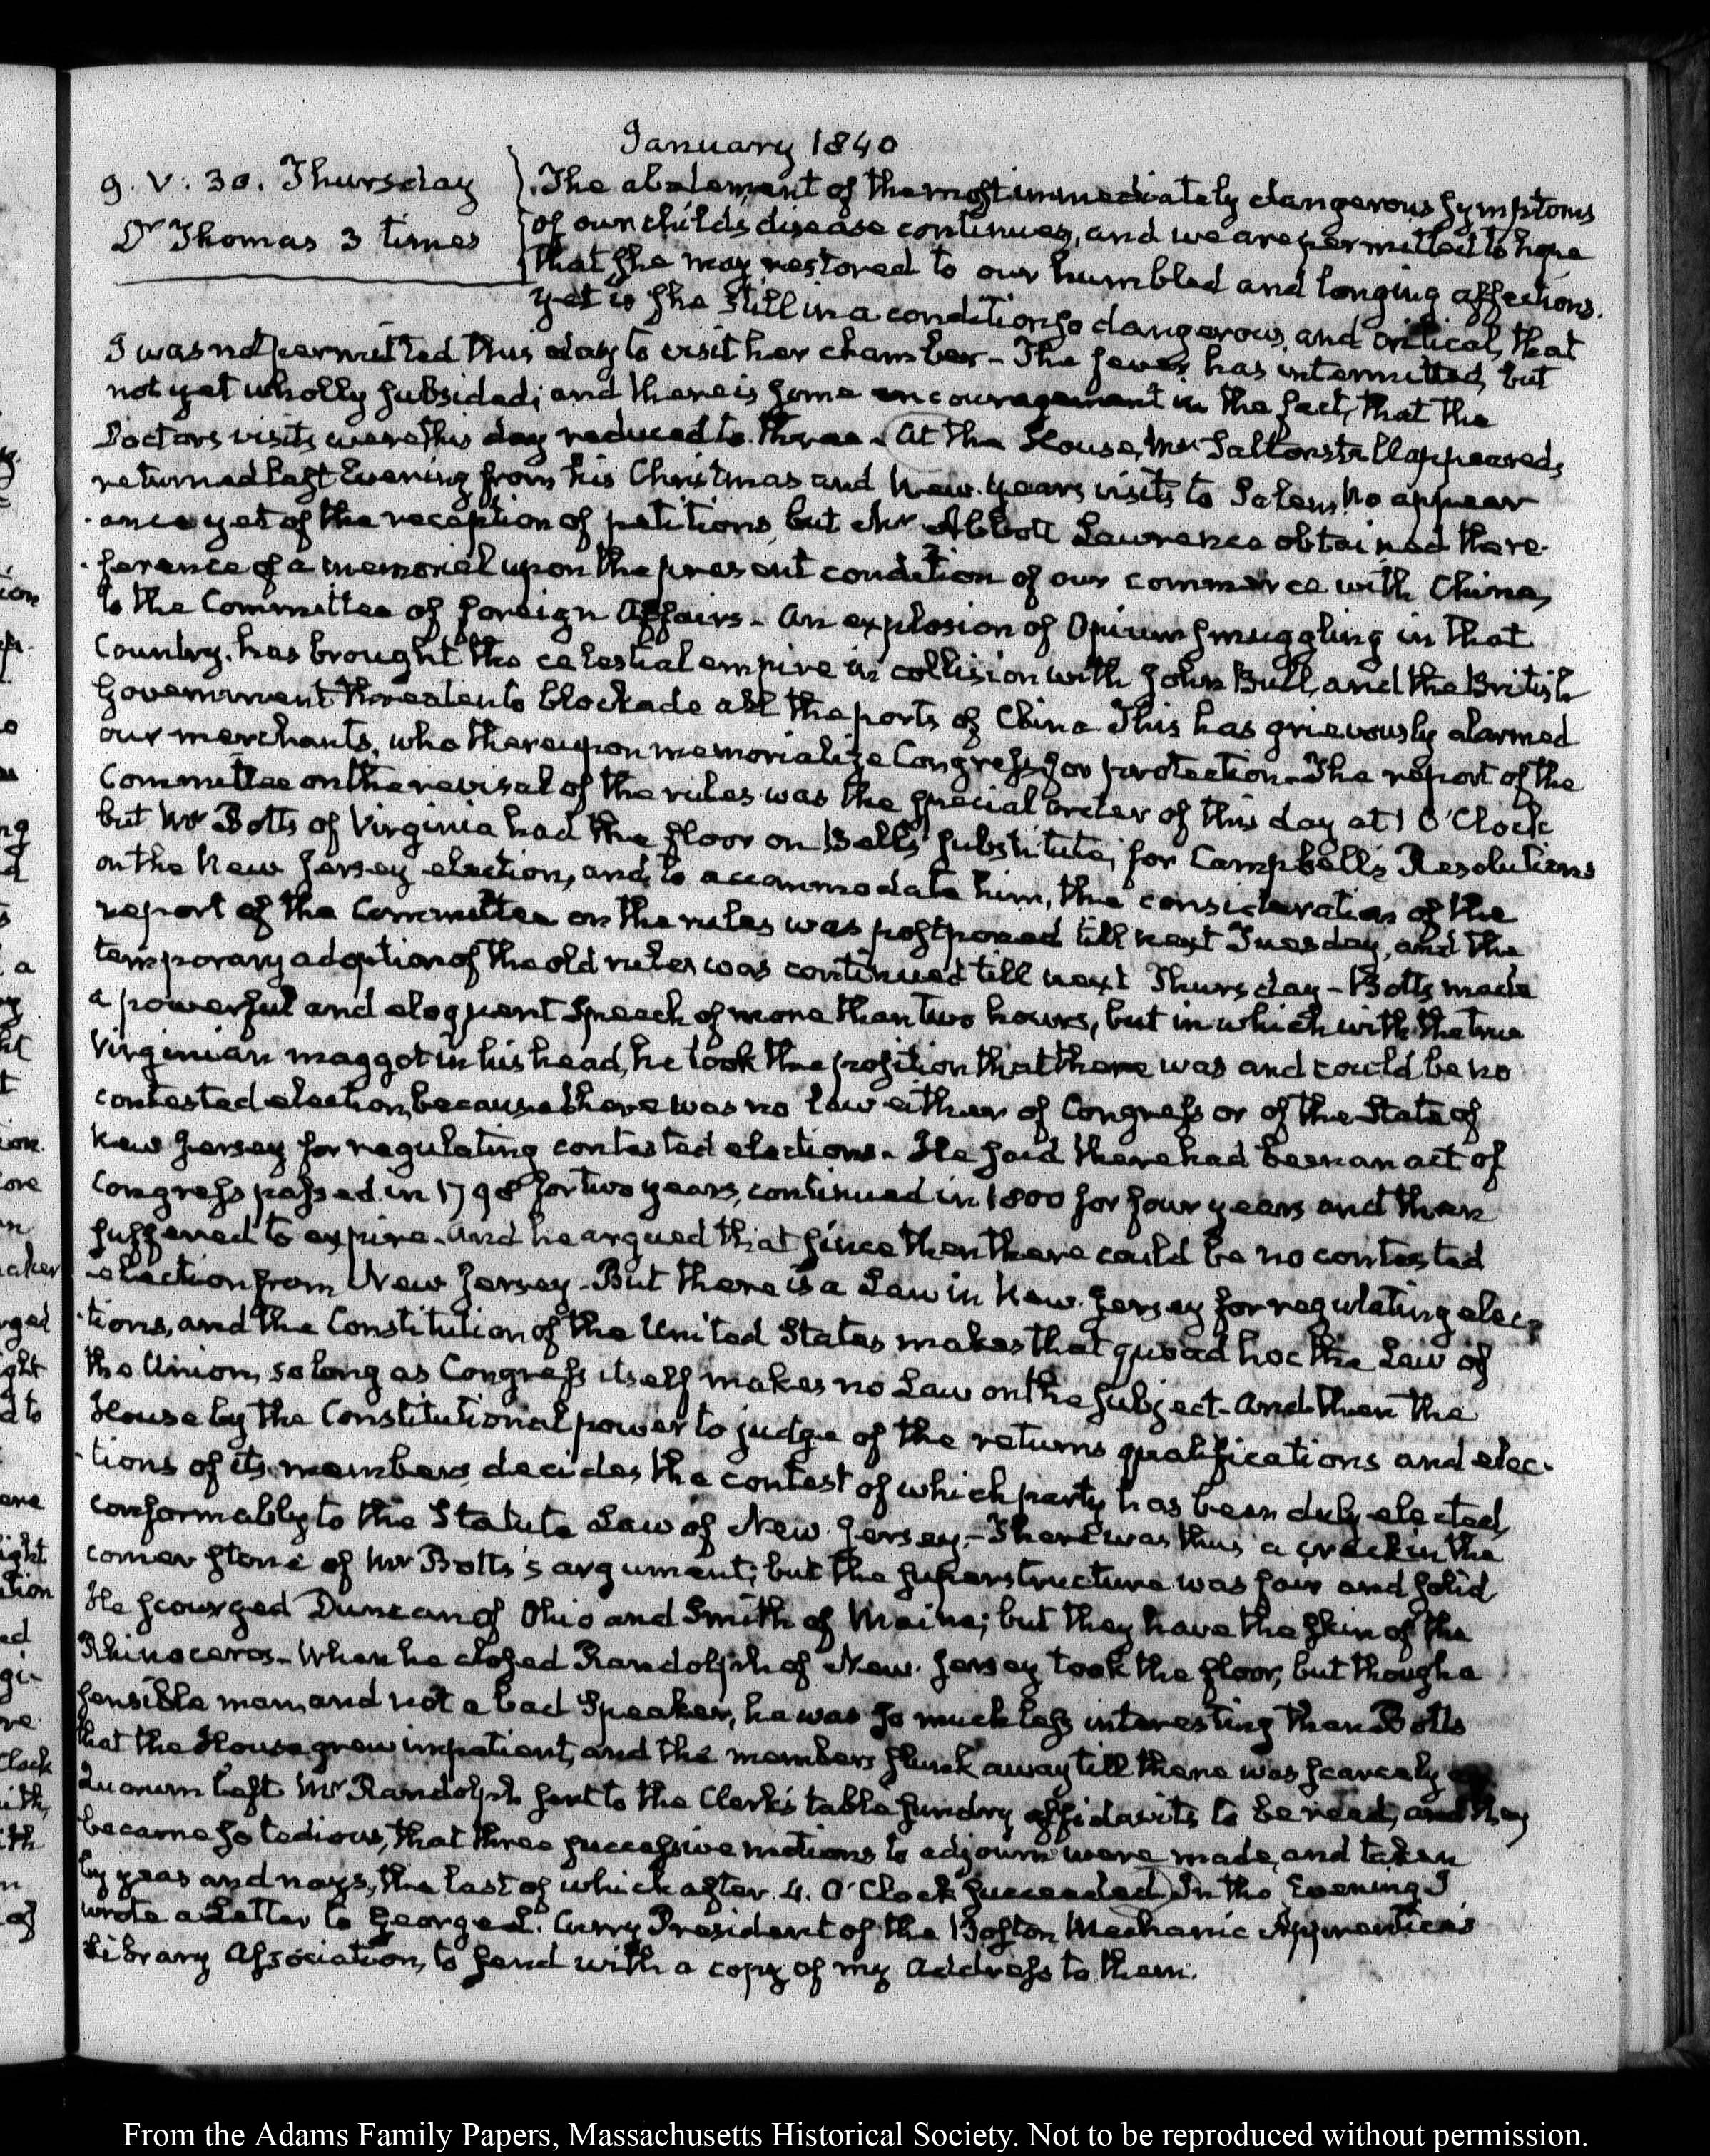 January 1840
9. V. 30. Thursday
Dr Thomas 3 times
The abatement of the most immediately dangerous symptoms
of our child's disease continues, and we are permitted to hope
that she may restored to our humbled and longing affections.
Yet is she still in a condition so dangerous, and critical, that
I was not permitted this day to visit her chamber – The fever has intermitted, but
not yet wholly subsided; and there is some encouragement in the fact, that the
Doctors visits were this day reduced to three – At the House, Mr Saltonstall appeared,
returned last Evening from his Christmas and New-years visits to Salem. No appear
-ance yet of the reception of petitions, but Mr Abbott Lawrence obtained the re-
-ference of a memorial upon the present condition of our commerce with China,
to the Committee of foreign Affairs – An explosion of Opium smuggling in that
Country, has brought the celestial empire in collision with John Bull, and the British
Government threaten to blockade all the ports of China This has grievously alarmed
our merchants, who thereupon memorialize Congress for protection – The report of the
Committee on the revisal of the rules was the special order of this day at 1 O'Clock
but Mr Botts of Virginia had the floor on Bell's substitute, for Campbell's Resolutions
on the New Jersey election, and to accommodate him, the consideration of the
report of the Committee on the rules was postponed till next Tuesday, and the
temporary adoption of the old rules was continued till next Thursday – Botts made
a powerful and eloquent Speech of more than two hours, but in which with the true
Virginian maggot in his head, he took the position that there was and could be no
contested election, because there was no Law either of Congress or of the State of
New Jersey for regulating contested elections – He said there had been an act of
Congress passed in 1798 for two years, continued in 1800 for four years and then
suffered to expire – And he argued that since then there could be no contested
election from New Jersey – But there is a Law in New-Jersey for regulating elec-
-tions, and the Constitution of the United States makes that quoad hoc the Law of
the Union, so long as Congress itself makes no Law on the subject – And then the
House by the Constitutional power to judge of the returns qualifications and elec-
-tions of its members, decides the contest of which party has been duly elected,
conformably to the Statute Law of New-Jersey – There was thus a crack in the
corner stone of Mr Botts's argument; but the superstructure was fair and solid
He scourged Duncan of Ohio and Smith of Maine; but they have the skin of the
Rhinoceros – When he closed Randolph of New-Jersey took the floor, but though a
sensible man, and not a bad Speaker, he was so much less interesting than Botts
that the House grew impatient, and the members slunk away till there was scarcely a
Quorum left Mr Randolph sent to the Clerk's table sundry affidavits to be read, and they
became so tedious, that three successive motions to adjourn were made, and taken
by yeas and nays, the last of which after 4. O'Clock succeeded In the Evening I
wrote a Letter to George L. Curry President of the Boston Mechanic Apprentices
Library Association, to send with a copy of my Address to them.
From the Adams Family Papers, Massachusetts Historical Society. Not to be reproduced without permission.